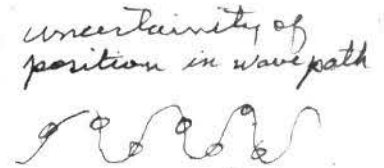 uncertainity of
position in wave path